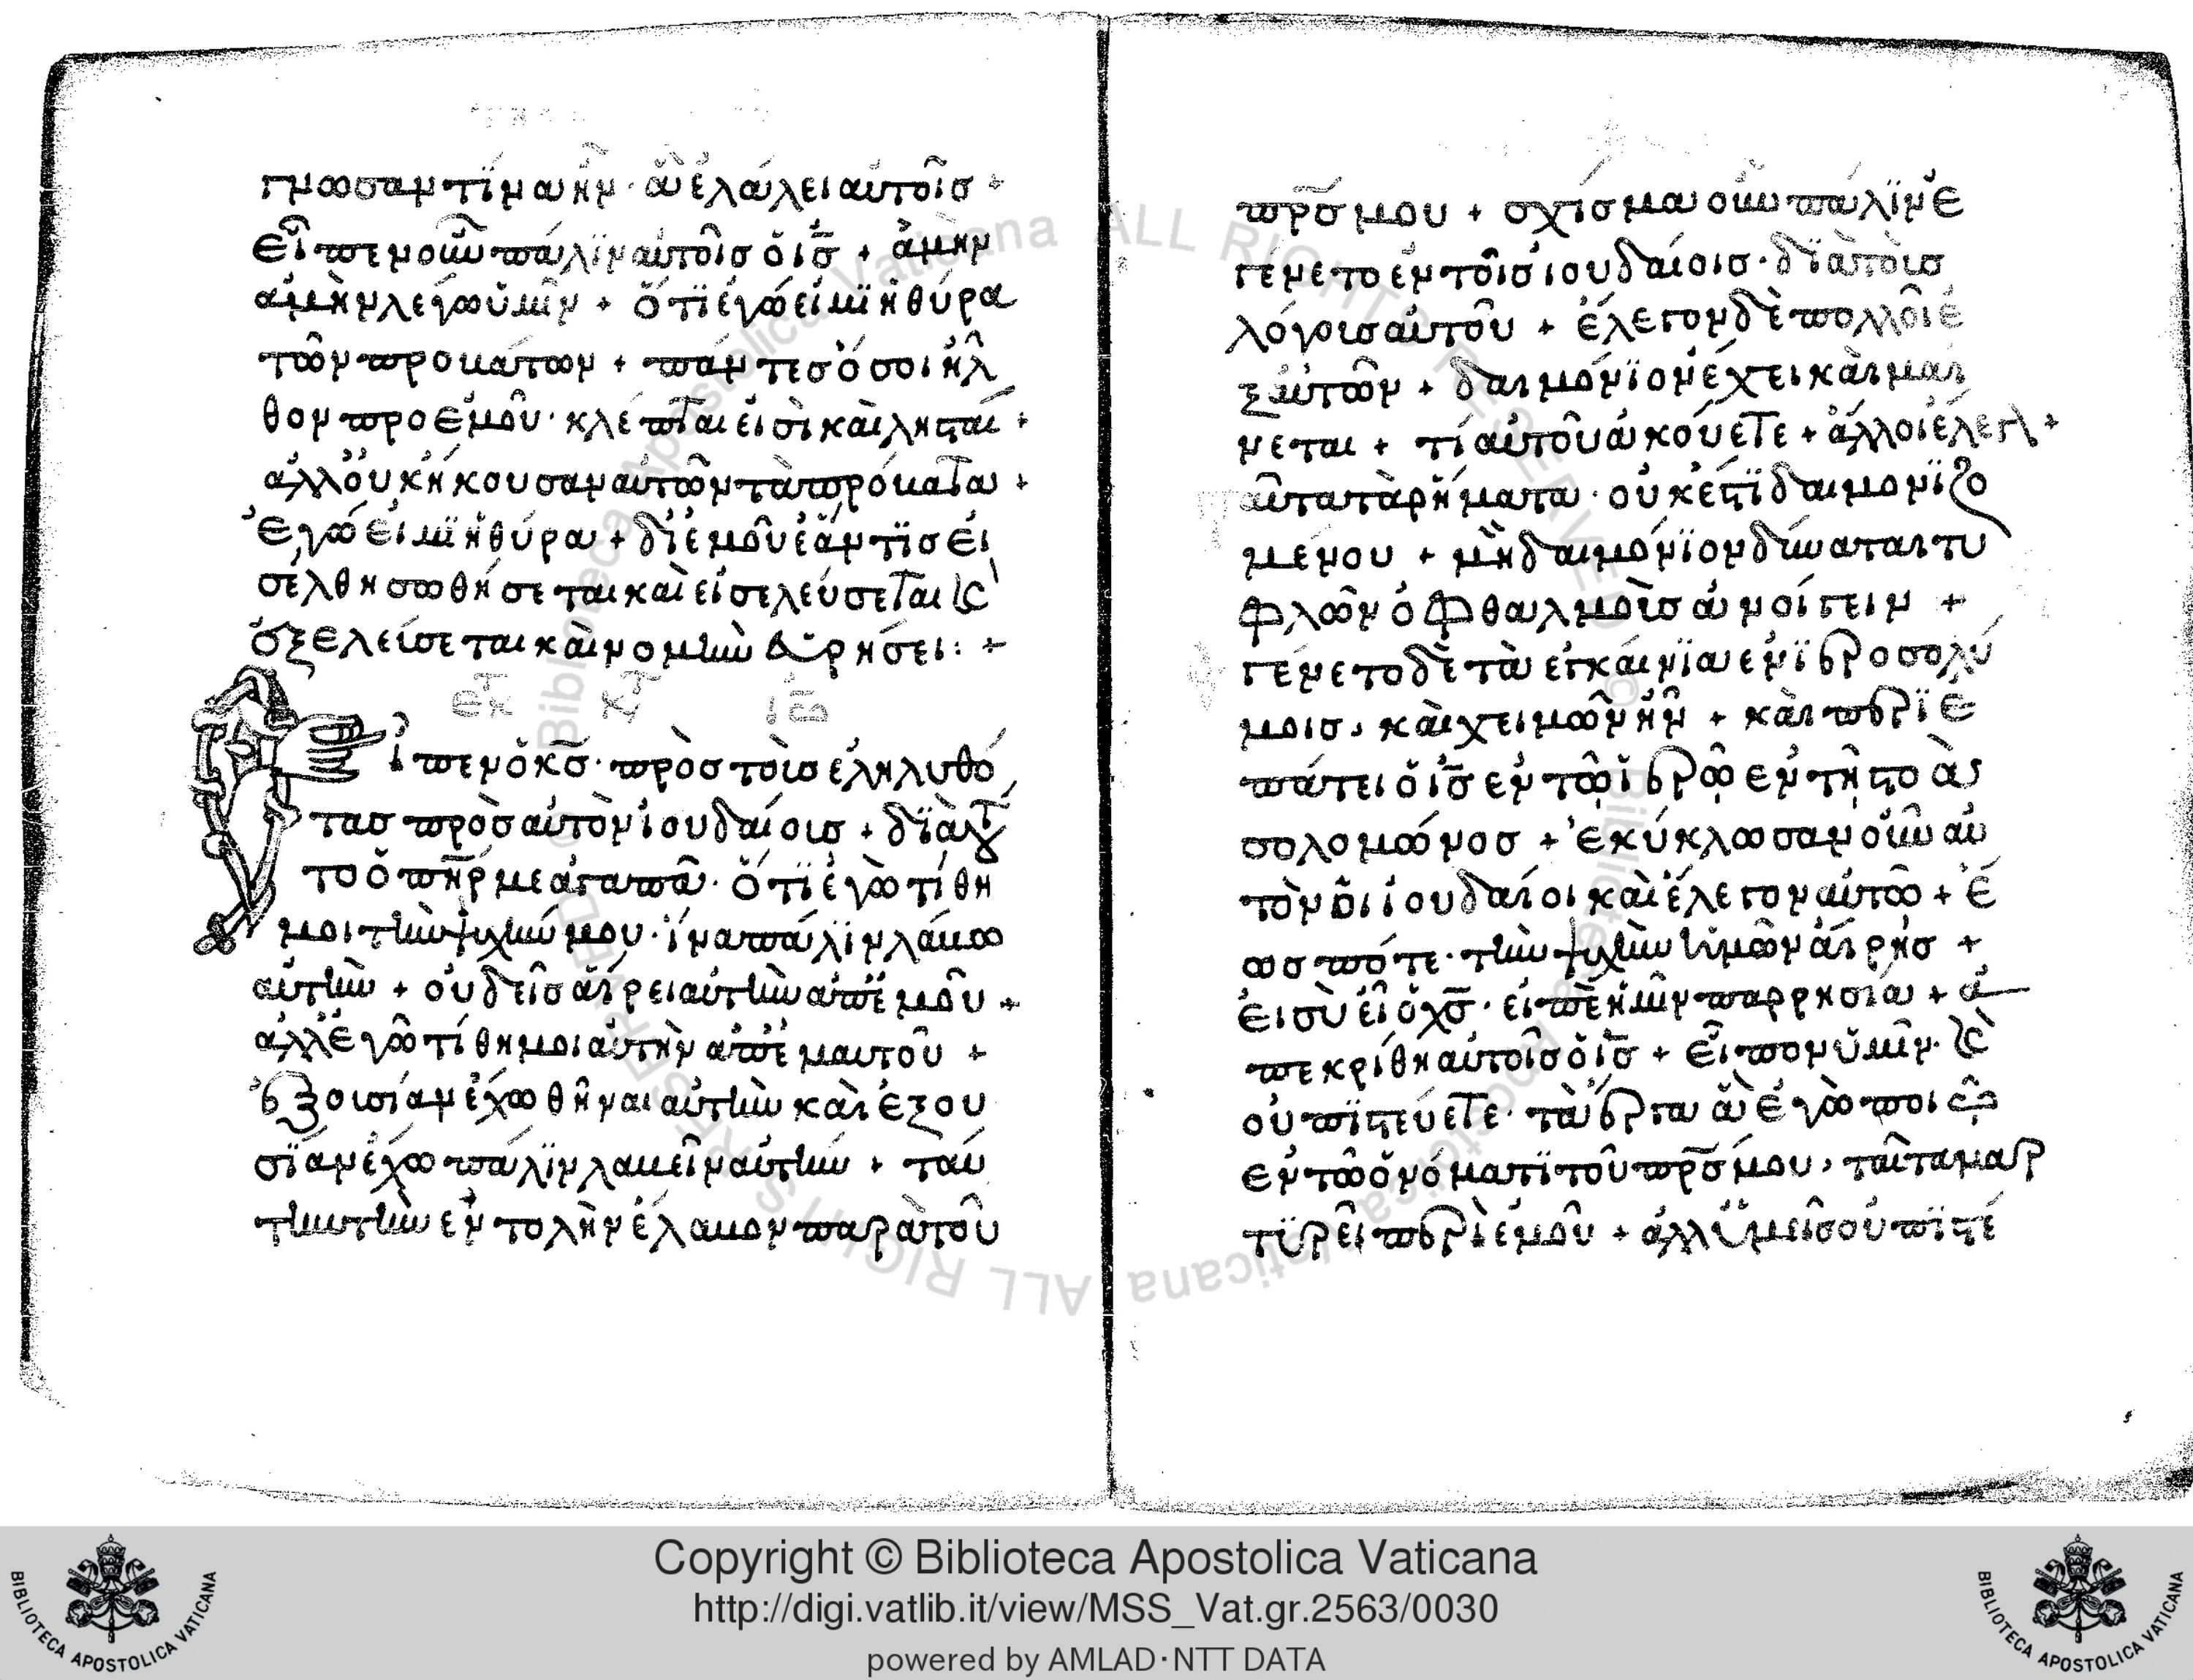 γνωσαν τΐνα ἦν · ἃ ἐλάλει αὐτοῖσ +
Εἶπεν οὖν πάλϊν αὐτοῖσ ὁ ισ̅ + ἀμὴν
ἀμὴν λέγω ὑμῖν + ὅτϊ ἐγώ εἰμϊ ἡ θύρα
τῶν προβάτων + πάντεσ ὅσοι ἦλ
θον προ ἐμοῦ · κλέπται εἰσὶ καὶ λησταί +
ἀλλ οὐκ ἤκουσαν αὐτῶν τὰ πρόβατα +
Ἐγώ εἰμϊ ἡ θύρα + δι ἐμοῦ ἐάν τϊσ εἰ
σέλθη σωθήσεται καὶ εἰσελεύσεται κ̀
ὀξελείσεται καὶ νομὴν εὑρήσει : +
Εἶπεν ὁ κσ̅ · πρὸσ τοὺσ ἐληλυθό
τασ πρὸσ αὐτὸν ἰουδαίουσ + δϊὰ τοῦ
το ὁ πη̅ρ με ἀγαπᾶ · ὅτϊ ἐγὼ τίθη
μοι τὴν ψυχήν μου · ἵνα πάλϊν λάβω
αὐτὴν + οὐδεὶσ αἴρει αὐτὴν ἀπ ἐμοῦ +
ἀλλ ἐγὼ τίθημοι αὐτὴν ἀπ ἐμαυτοῦ +
ἐξουσίαν ἔχω θῆναι αὐτὴν καὶ ἐξου
σΐαν ἔχω πάλϊν λαβεῖν αὐτήν + ταύ
την τὴν ἐντολὴν ἔλαβον παρὰ τοῦ
πρ̅σ μου + σχίσμα οὖν πάλϊν ἐ
γένετο ἐν τοῖσ ἰουδαίοισ · δϊὰ τοὺσ
λόγουσ αὐτοῦ + ἔλεγον δὲ πολλοὶ ἐ
ξ αὐτῶν + δαιμόνϊον ἔχει καὶ μαί
νεται + τί αὐτοῦ ἀκούετε + ἄλλοι ἔλεγον +
ταῦτα τὰ ρήματα · οὐκ ἔστϊ δαιμονϊζο
μένου + μὴ δαιμόνϊον δύναται τυ
φλῶν ὀφθαλμοὺσ ἀνοίγειν +
γένετο δὲ τὰ ἐγκαίνϊα ἐν ϊεροσολύ
μοισ, καὶ χειμὼν ἦν + καὶ περϊε
πάτει ὁ ισ̅ ἐν τῶ ἱερῶ ἐν τῆ στοᾶ
σολομῶνοσ + Ἐκύκλωσαν οὖν αὐ
τὸν οἱ ἰουδαίοι καὶ ἔλεγον αὐτῶ + ἕ
ωσ πότε · τὴν ψυχὴν ἡμῶν αἴρησ +
εἰ σὺ εἶ ὁ χσ̅ · εἰπὲ ἡμῖν παρρησία + ἀ
πεκρίθη αὐτοῖσ ὁ ισ̅ + Εἶπον ὑμῖν · κ̀
οὐ πϊστεύετε · τὰ ἔργα ἃ ἐγὼ ποιῶ
ἐν τῶ ὀνόματϊ τοῦ πρ̅σ μου, ταῦτα μαρ
τϋρεῖ περὶ ἐμοῦ + ἀλλ ὑμεῖσ οὐ πϊστέ